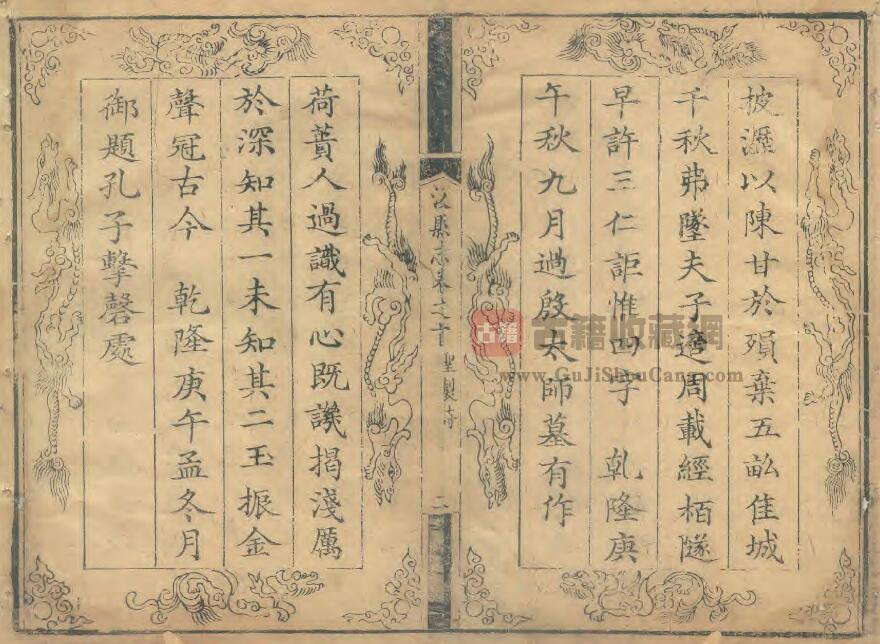 披瀝以陳甘於殞棄五畆佳城
千秋弗墜夫子周載經栢隧
早許三仁詎惟四字 乾隆庚
午秋九月過殷太師墓有作
汲縣志卷之首 聖製詩 二
荷蕢人過識有心既譏揭淺厲
於深知其一未知其二玉振金
聲冠古今 乾隆庚午孟冬月
御題孔子擊磬處
古籍 古籍收藏網
www.GuJiShouCang.com